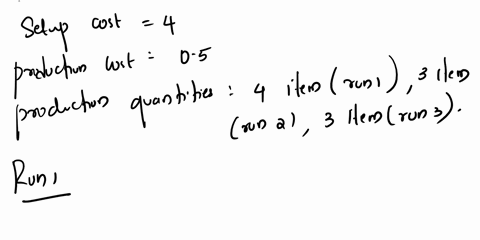 Setup cost = 4
production cost = 0.5
production quantities : 4 item (run 1), 3 item
(run 2), 3 item (run 3).
Run 1